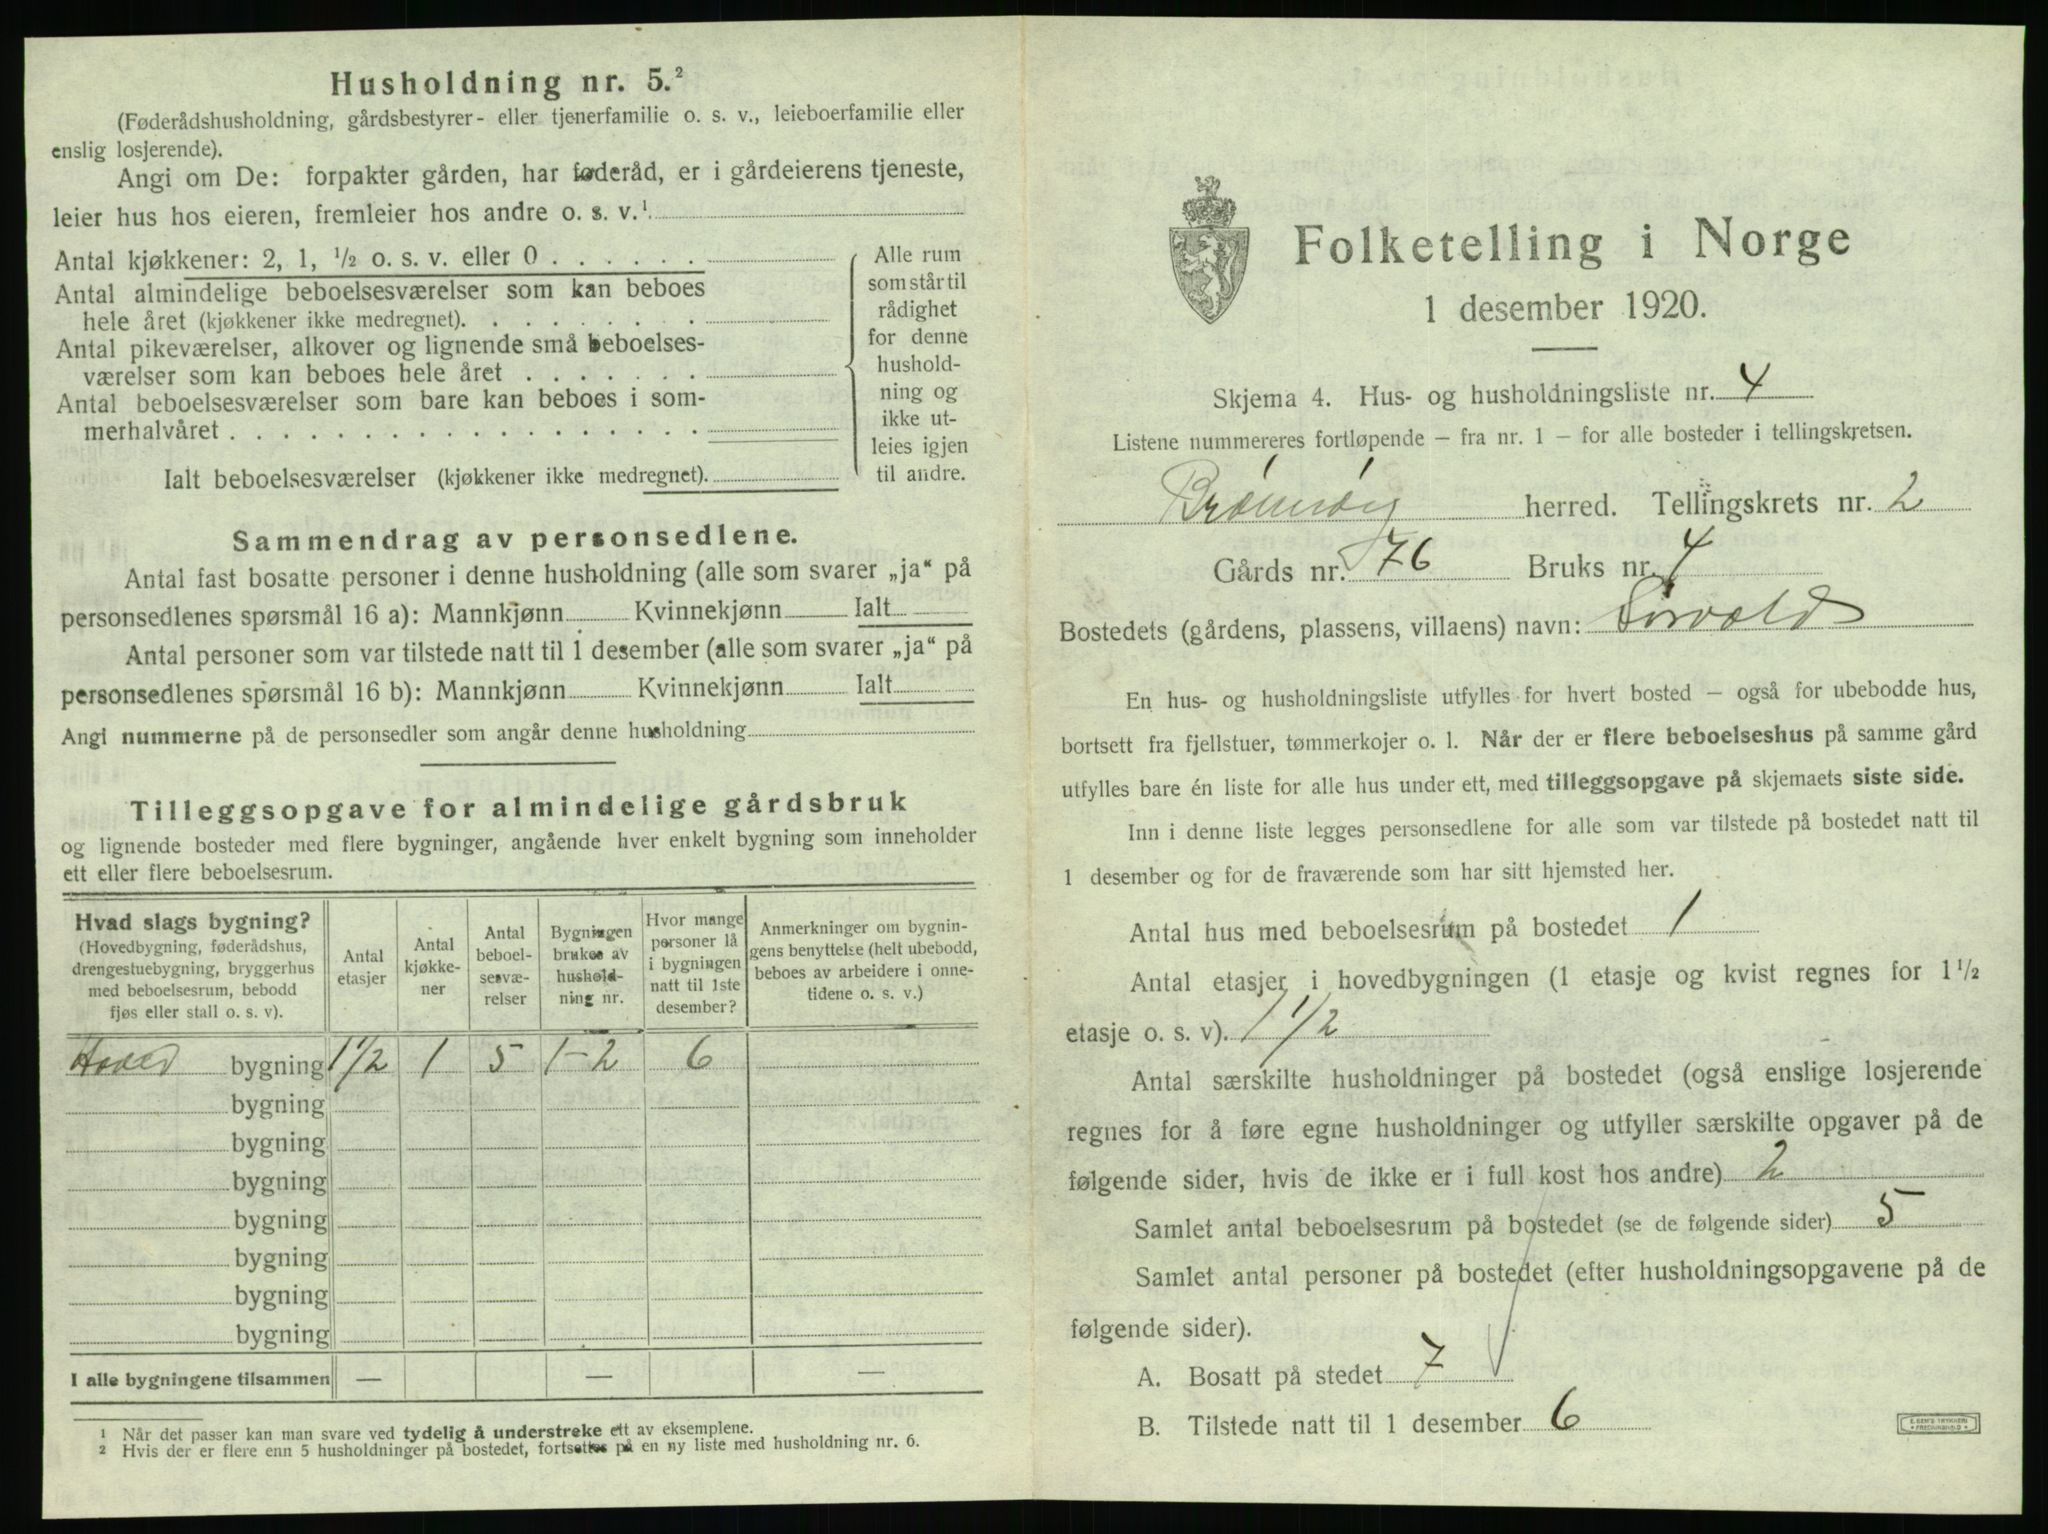 Husholdning nr. 5.²
(Føderådshusholdning, gårdsbestyrer- eller tjenerfamilie o. s. v., leieboerfamilie eller
enslig losjerende).
Angi om De: forpakter gården, har føderåd, er i gårdeierens tjeneste,
leier hus hos eieren, fremleier hos andre o. s. v.¹
Antal kjøkkener: 2, 1, ½ o. s. v. eller 0
Antal almindelige beboelsesværelser som kan beboes
hele året (kjøkkener ikke medregnet).
Antal pikeværelser, alkover og lignende små beboelses-
værelser som kan beboes hele året
Antal beboelsesværelser som bare kan beboes i som-
merhalvåret
Ialt beboelsesværelser (kjøkkener ikke medregnet).
Alle rum
som står til
rådighet
for denne
hushold-
ning og
ikke ut-
leies igjen
til andre.
Sammendrag av personsedlene.
Antal fast bosatte personer i denne husholdning (alle som svarer „ja“ på
personsedlenes spørsmål 16 a): Mannkjønn Kvinnekjønn Ialt
Antal personer som var tilstede natt til 1 desember (alle som svarer „ja“ på
personsedlenes spørsmål 16 b): Mannkjønn Kvinnekjønn Ialt
Angi nummerne på de personsedler som angår denne husholdning
Tilleggsopgave for almindelige gårdsbruk
og lignende bosteder med flere bygninger, angående hver enkelt bygning som inneholder
ett eller flere beboelsesrum.
Hvad slags bygning?
(Hovedbygning, føderådshus,
drengestuebygning, bryggerhus
med beboelsesrum, bebodd
fjøs eller stall o. s. v).
Antal
etasjer
Antal
kjøkke-
ner
Antal
beboel-
sesvæ-
relser
Bygningen
brukes av
hushold-
ning nr.
Hvor mange
personer lå
i bygningen
natt til 1ste
desember?
Anmerkninger om bygnin-
gens benyttelse (helt ubebodd,
beboes av arbeidere i onne-
tidene o. s. v.)
Hoved bygning 1½ 1 5 1-2 6
bygning
bygning
bygning
bygning
bygning
bygning
bygning
I alle bygningene tilsammen — — —
¹ Når det passer kan man svare ved tydelig å understreke ett av eksemplene.
² Hvis der er flere enn 5 husholdninger på bostedet, fortsettes på en ny liste med husholdning nr. 6.
Folketelling i Norge
1 desember 1920.
Skjema 4. Hus- og husholdningsliste nr. 4
Listene nummereres fortløpende – fra nr. 1 – for alle bosteder i tellingskretsen.
Brønnøy herred. Tellingskrets nr. 2
Gårds nr. 76 Bruks nr. 4
Bostedets (gårdens, plassens, villaens) navn:
En hus- og husholdningsliste utfylles for hvert bosted – også for ubebodde hus,
bortsett fra fjellstuer, tømmerkojer o. l. Når der er flere beboelseshus på samme gård
utfylles bare én liste for alle hus under ett, med tilleggsopgave på skjemaets siste side.
Inn i denne liste legges personsedlene for alle som var tilstede på bostedet natt til
1 desember og for de fraværende som har sitt hjemsted her.
Antal hus med beboelsesrum på bostedet 1
Antal etasjer i hovedbygningen (1 etasje og kvist regnes for 1½
etasje o. s. v). 1½
Antal særskilte husholdninger på bostedet (også enslige losjerende
regnes for å føre egne husholdninger og utfyller særskilte opgaver på de
følgende sider, hvis de ikke er i full kost hos andre) 2
Samlet antal beboelsesrum på bostedet (se de følgende sider) 5
Samlet antal personer på bostedet (efter husholdningsopgavene på de
følgende sider).
A. Bosatt på stedet 7
B. Tilstede natt til 1 desember 6